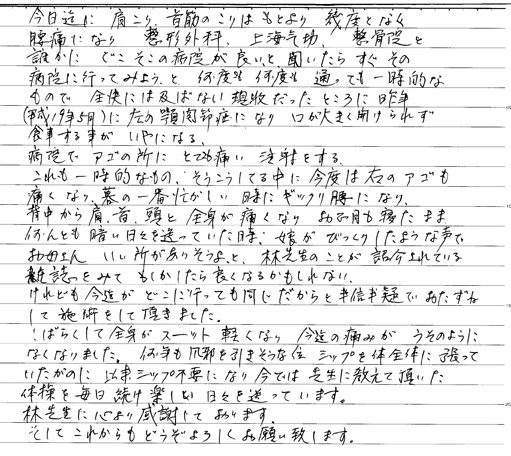 今日迄に 肩こり、首筋のこりはもとより 幾度となく
腰痛になり 整形外科、上海気功、整骨院と
誰かに どこそこの病院が良いと聞いたら すぐその
病院に行ってみようと 何度も何度も通っても一時的な
もので 全快には及ばない現状だった ところに昨年
(平成19年5月)に左の顎関節症になり 口が大きく開けられず
食事する事が いやになる、
病院で アゴの所に とても痛い 注射をする、
これも一時的なもの、そうこうしてる中に今度は右のアゴも
痛くなり、暮の一番忙がしい 時にギックリ腰になり、
背中から肩、首、頭と 全身が痛くなり お正月も寝たまま
何んとも暗い日々を送っていた時、娘が びっくりしたような声で
お母さん いい所がありそうよ、と、林先生のことが 紹介されている
雑誌をみて もしかしたら良くなるかもしれない、
けれども今迄が どこに行っても同じだからと半信半疑でおたずね
して 施術をして頂きました。
しばらくして全身が スーット 軽くなり 今迄の痛みが うそのように
なくなりました。 何年も 風邪を引きそうな位 シップを体全体に張って
いたがのに 以来シップ不要になり今では 先生に教えて頂いた
体操を毎日続け楽しい 日々を送っています。
林先生に心より感謝して おります。
そして これからも どうぞよろしくお願い致します。